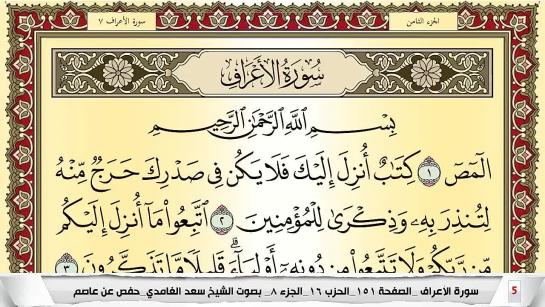 سورة الأعراف ٧
الجزء الثامن
سُورَةُ الأَعْرَافِ
بِسْمِ ٱللَّهِ ٱلرَّحْمَٰنِ ٱلرَّحِيمِ
الٓمٓصٓ ١ كِتَٰبٌ أُنزِلَ إِلَيْكَ فَلَا يَكُن فِى صَدْرِكَ حَرَجٌ مِّنْهُ
لِتُنذِرَ بِهِۦ وَذِكْرَىٰ لِلْمُؤْمِنِينَ ٢ ٱتَّبِعُوا۟ مَآ أُنزِلَ إِلَيْكُم
مِّن رَّبِّكُمْ وَلَا تَتَّبِعُوا۟ مِن دُونِهِۦٓ أَوْلِيَآءَ ۗ قَلِيلًا مَّا تَذَكَّرُونَ ٣
سورة الاعراف _الصفحة ١٥١_الحزب ١٦_الجزء ٨_ بصوت الشيخ سعد الغامدي_حفص عن عاصم
5